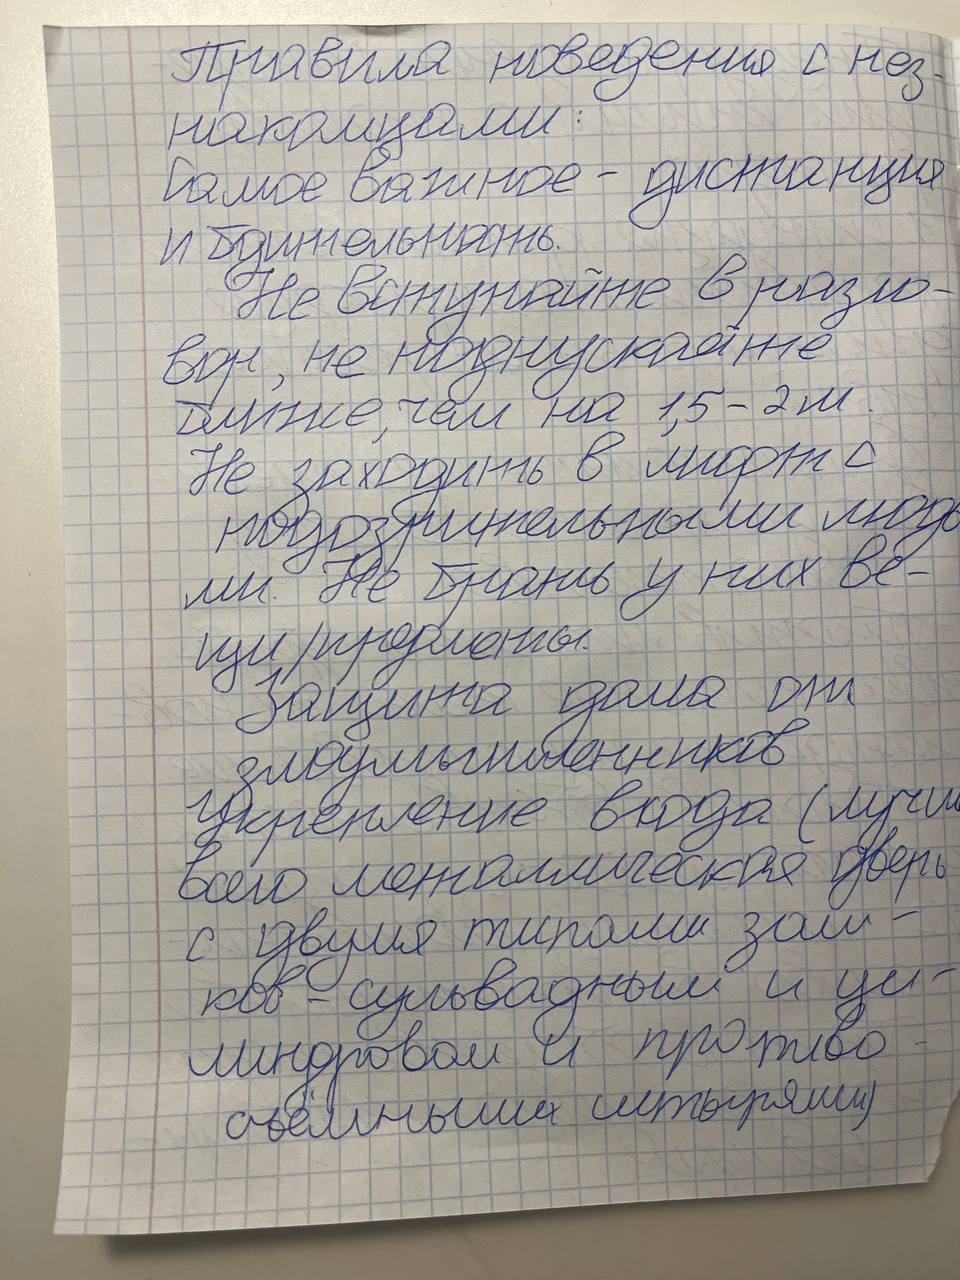 Правила поведения с нез-
накомцами:
Самое важное - дистанция
и бдительность.
Не вступайте в разго-
вор, не подпускайте
ближе, чем на 1,5-2 м.
Не заходить в лифт с
подозрительными людь
ми. Не брать у них ве-
щи/предметы.
Защита дома от
злоумышленников
Укрепление входа (лучше
всего металлическая дверь
с двумя типами зам-
ков - сувальдным и ци-
линдровом и противо-
съёмными штырями)